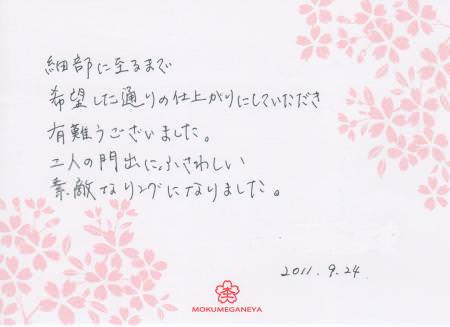 細部に至るまで
希望した通りの仕上がりにしていただき
有難うございました。
二人の門出にふさわしい
素敵なリングになりました。
2011.9.24
MOKUMEGANEYA